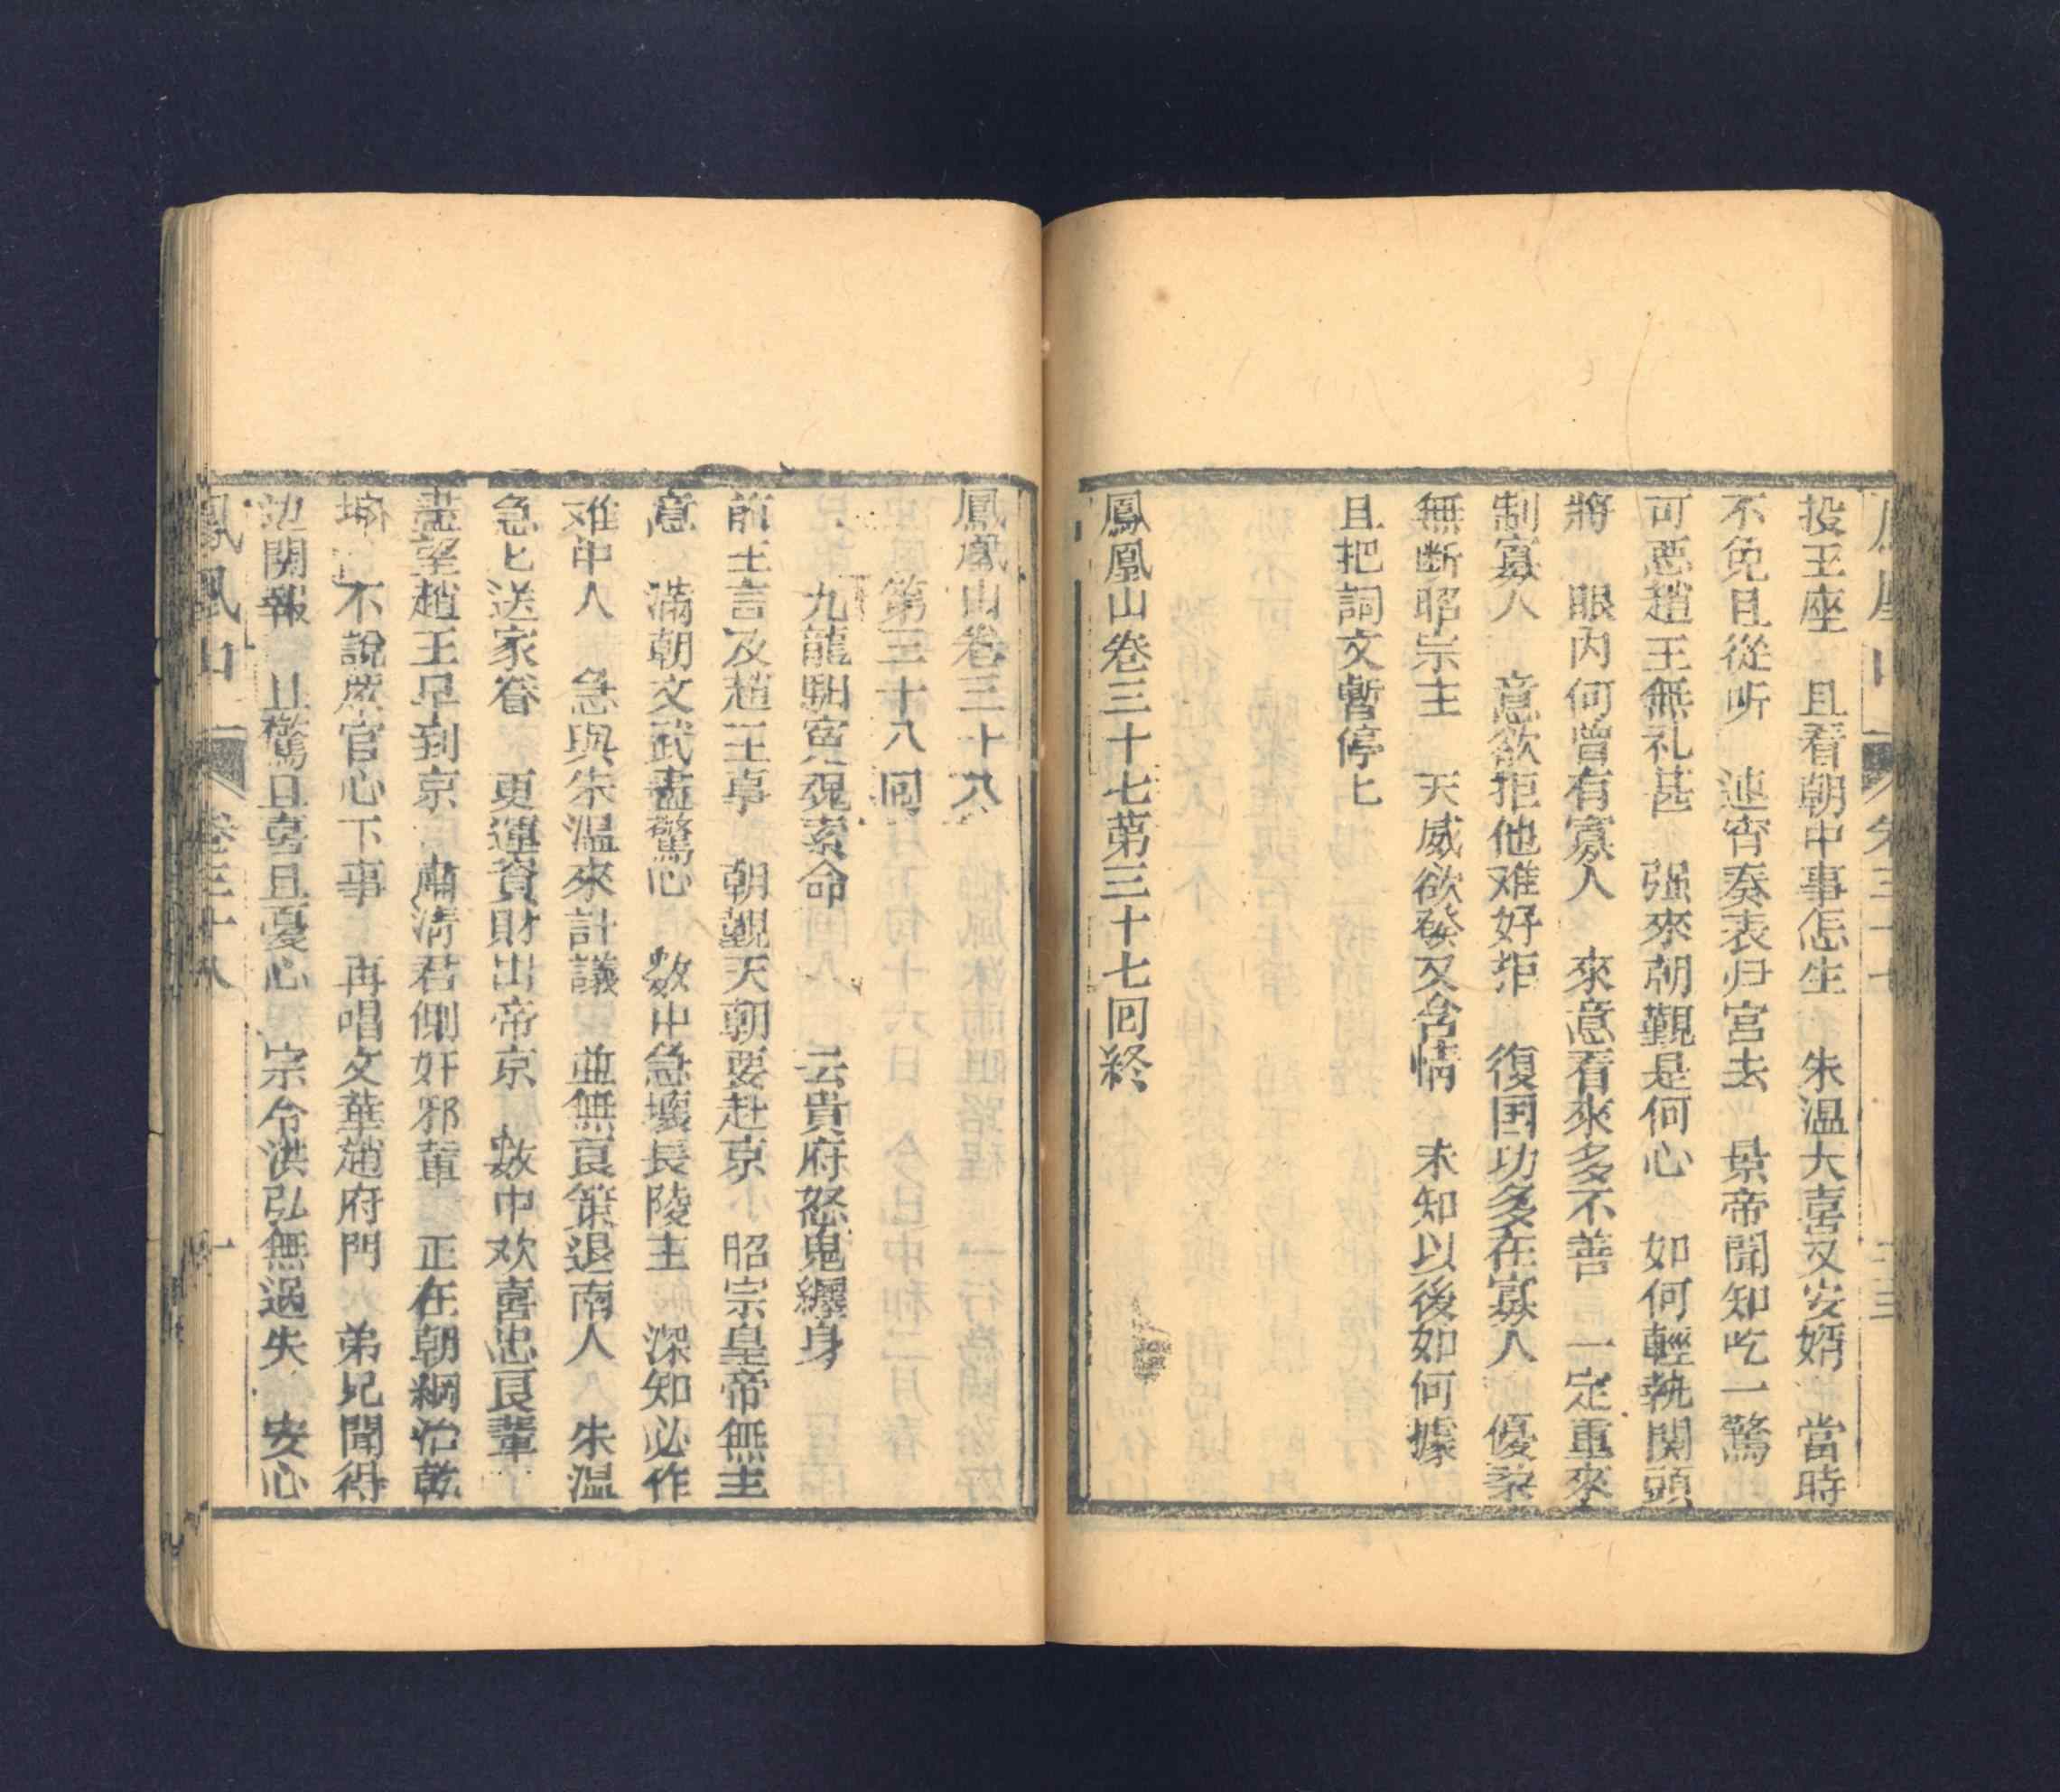 投王座　且看朝中事怎生　朱温大喜又安婿　當時
不免且從听　連宵奏表归宫去　景帝聞知吃一驚
可惡趙王無礼甚　强來朝覲是何心　如何輕執関頭
將　眼內何曾有寡人　來意看來多不善　一定重來
制寡人　意欲拒他难好拒　復国功多在寡人　優柔
無断昭宗主　天威欲發又含情　未知以後如何據
且把詞文暫停匕
鳳凰山卷三十七第三十七回終
鳳凰山卷三十八
第三十八回
九龍駟宮冤魂索命　云貴府怒鬼纏身
前王言及趙王事　朝覲天朝要赴京　昭宗皇帝無主
意　滿朝文武盡驚心　数中急壞長陵主　深知必作
难中人　急與朱温來計議　並無良策退南人　朱温
急匕送家眷　更運資財出帝京　數中欢喜忠良輩
盡望趙王早到京　肅清君側奸邪輩　正在朝綱治乾
坤　不說眾官心下事　再唱文華趙府門　弟兄聞得
边関報　且驚且喜且憂心　宗令洪弘無過失　安心
鳳凰山　卷三十八　一